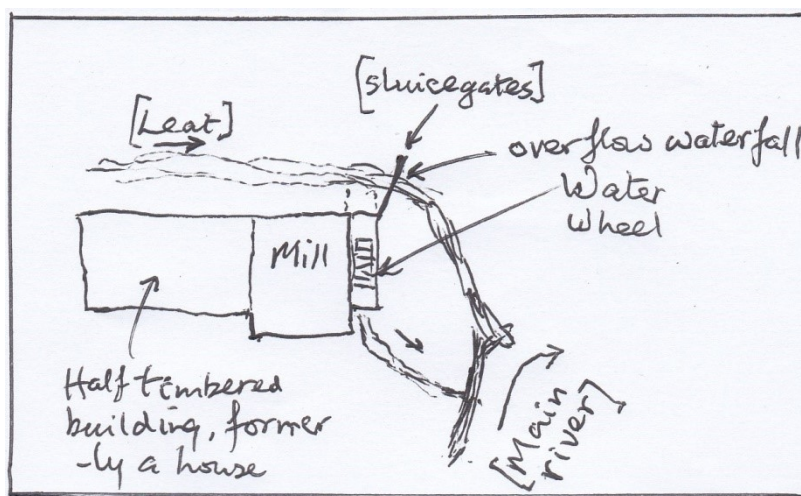 [sluicegates]
[Leat]
overflow waterfall
Water
Wheel
Mill
Half timbered
building, former
-ly a house
[Main
river]